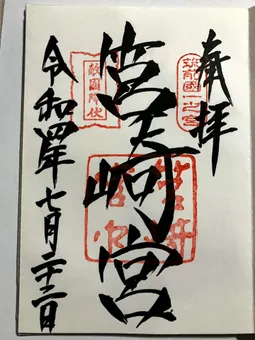 奉拝
筑前國一之宮
筥崎宮
敵國降伏
令和四年七月二十二日